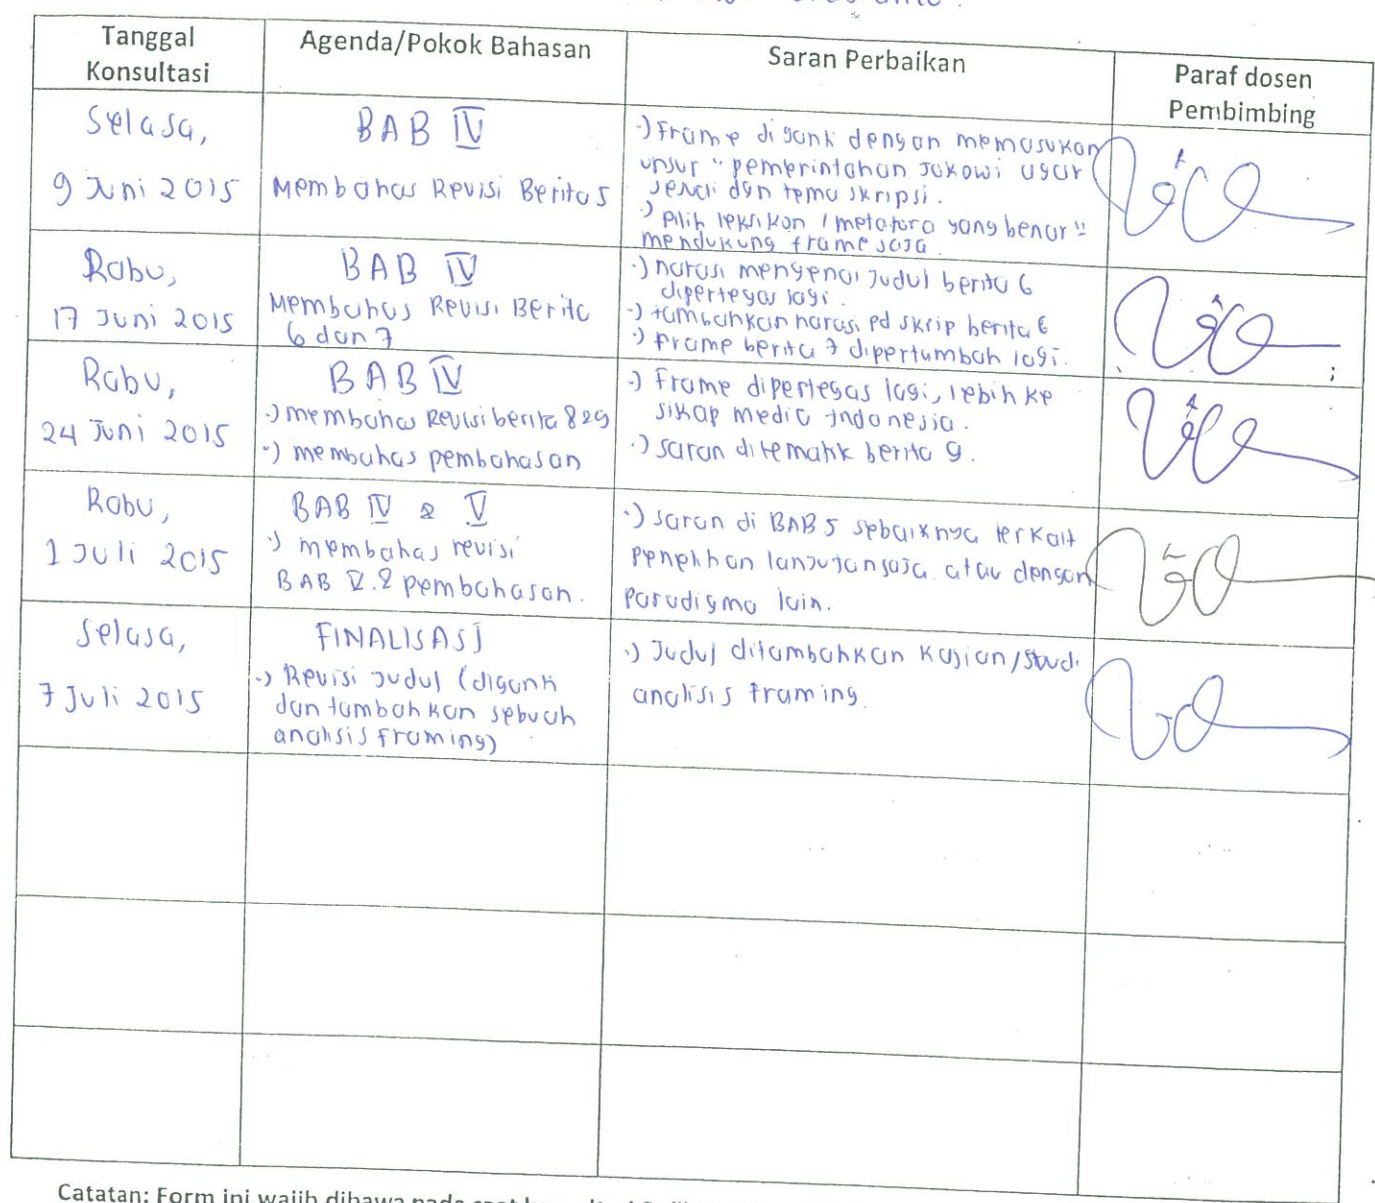 Tanggal
Konsultasi
Agenda/Pokok Bahasan
Saran Perbaikan
Paraf dosen
Pembimbing
Selasa,
9 Juni 2015
BAB IV
Membahas Revisi Berita 5
·) Frame diganti dengan memasukan
unsur "pemerintahan Jokowi agar
sesuai dgn tema skripsi.
·) pilih leksikon / metafora yang benar"
mendukung frame saja.
Rabu,
17 Juni 2015
BAB IV
Membahas Revisi Berita
6 dan 7
·) narasi mengenai judul berita 6
dipertegas lagi.
·) tambahkan narasi pd skrip berita 6
·) Frame berita 7 dipertambah lagi.
Rabu,
24 Juni 2015
BAB IV
·) membahas Revisi berita 8 & 9
·) membahas pembahasan
·) Frame dipertegas lagi, lebih ke
sikap media Indonesia.
·) saran di tematik berita 9.
Rabu,
1 Juli 2015
BAB IV & V
·) membahas revisi
BAB V. & pembahasan.
·) saran di BAB 5 sebaiknya terkait
penelitian lanjutan saja. atau dengan
paradigma lain.
Selasa,
7 Juli 2015
FINALISASI
·) Revisi Judul (diganti
dan tambahkan sebuah
analisis framing)
·) Judul ditambahkan kajian/studi
analisis framing.
Catatan: Form ini wajib dibawa pada saat